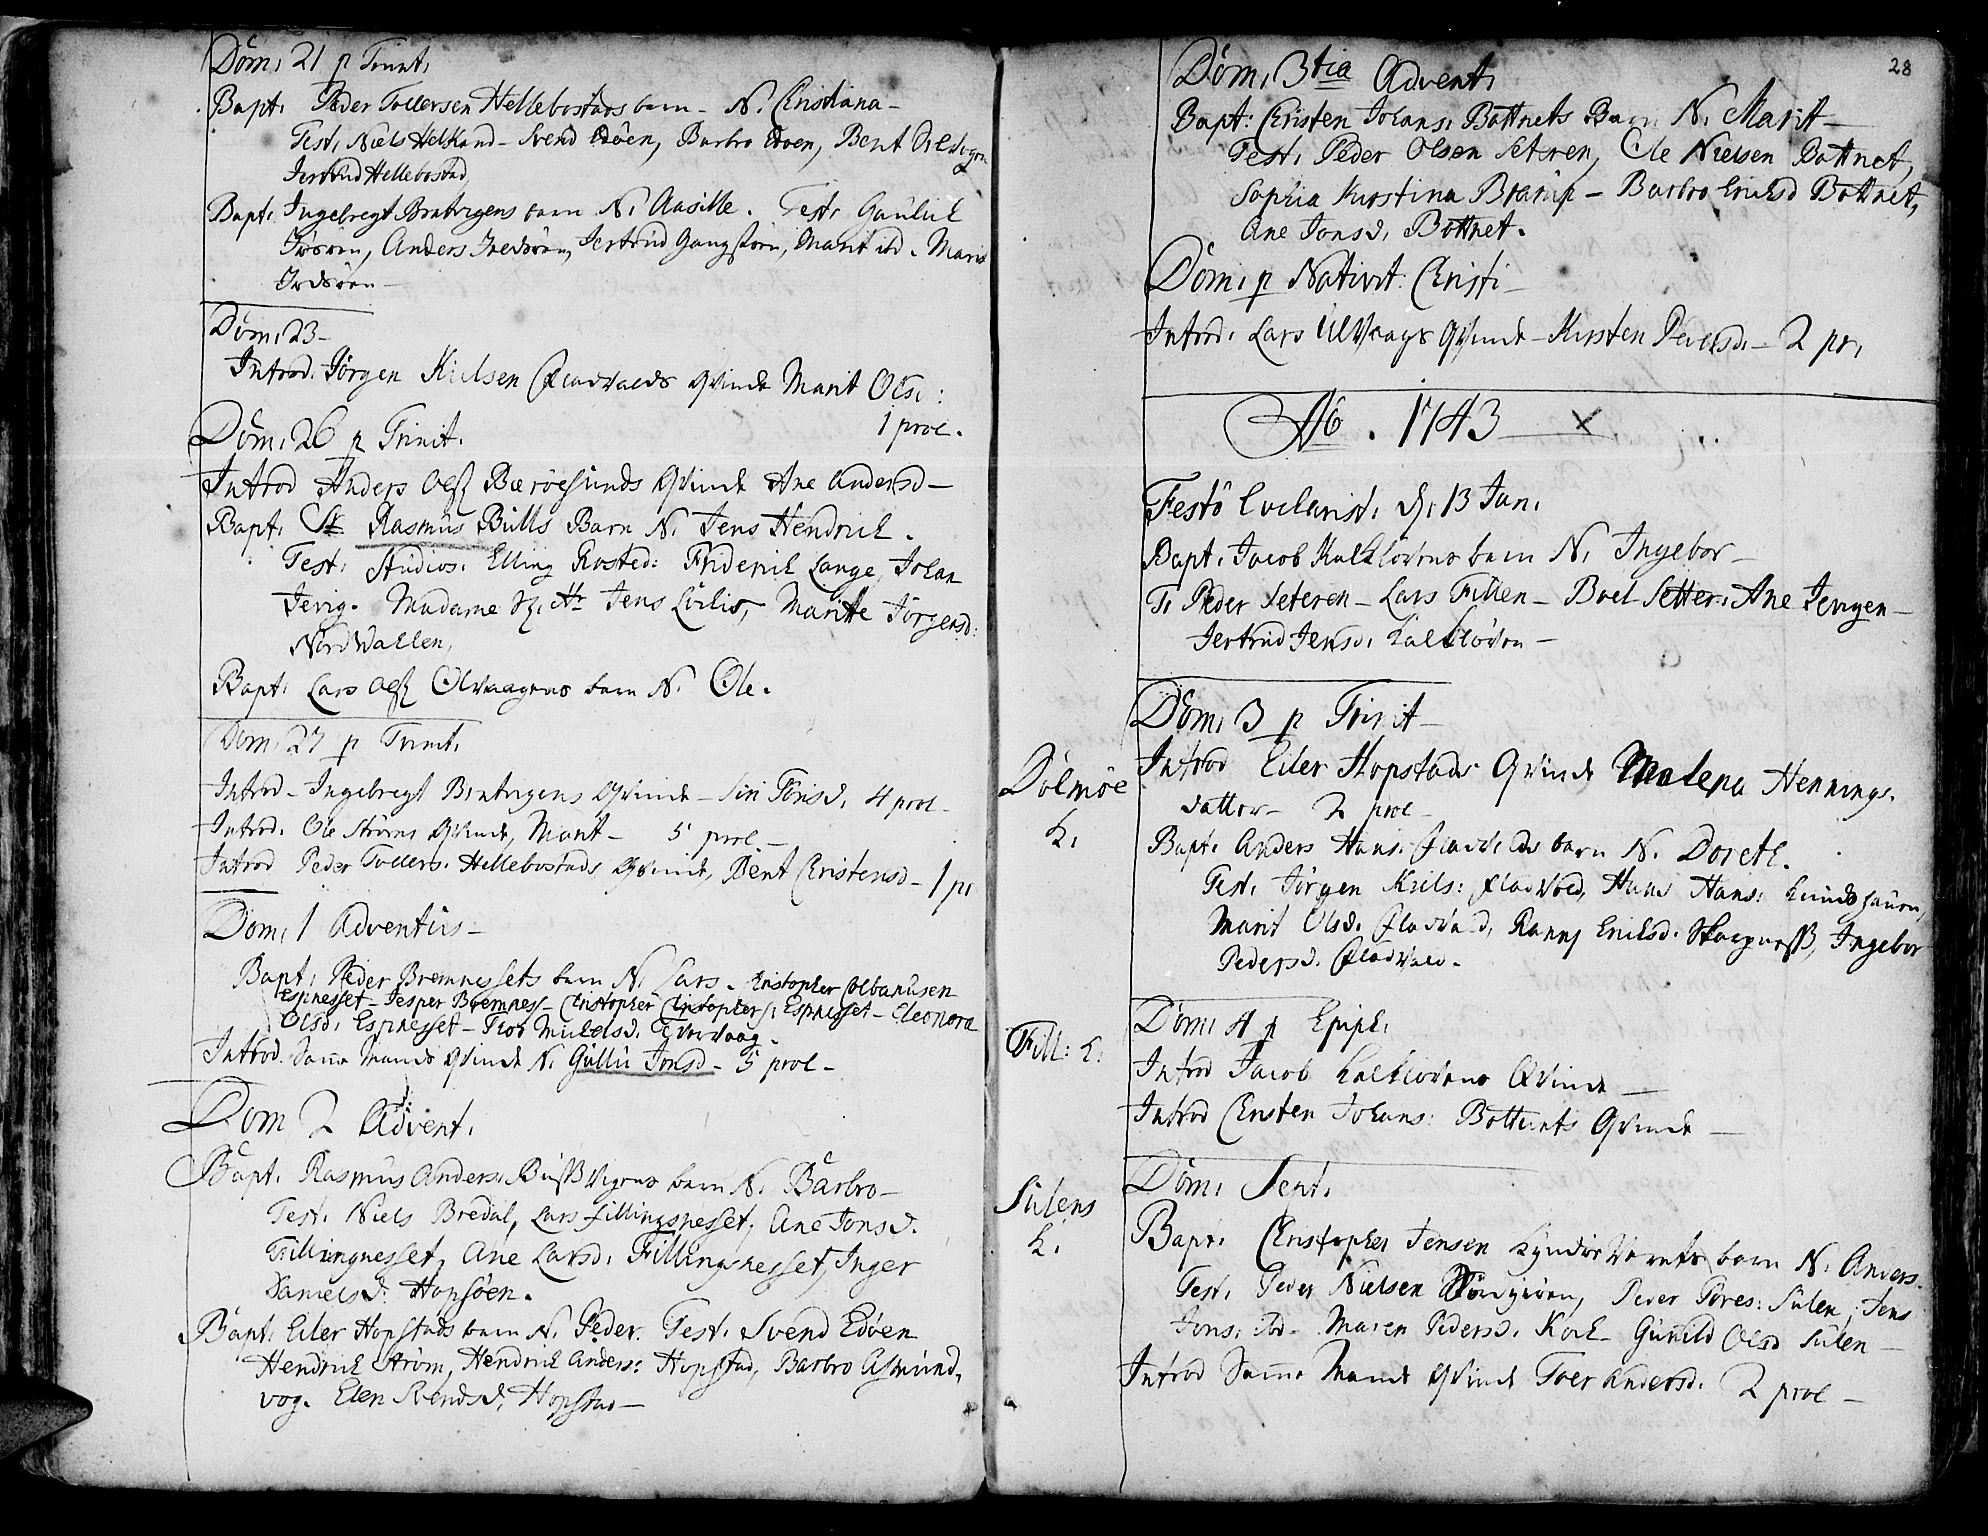 Dom, 21 p Trinit,
Bapt, Peder Tollersen Hellebostads barn - N. Christiana -
Test, Niels Helsand - Svend Edöen, Barbro Edöen, Bent
Jertrud Hellebostad
Bapt, Ingebregt Bratvigens barn N. Aasille. Test, Gaülich
Anders Jertrud Gangstöen, Marit ibd - Marit
Dom, 23 -
Introd. Jörgen Kielsen Fladvalds Qvinde Marit Ols:
1 prol.
Dom, 26 p Trinit.
Introd Anders Oless Baröesunds Qvinde Ane Andersd -
Bapt. Sr Rasmus Bülls Barn N. Jens Hendrich.
Test, Studios. Elling Rosted: Friderich Lange, Johan
Jevig. Madame Sl. Hr Jens Marthe Jörgensd:
Nordvallen,
Bapt, Lars Oless Olvaagens barn N. Ole.
Dom, 27 p Trinit,
Introd - Ingebregt Bratvigens Qvinde - Siri Törisd, 4 prol -
Introd. Ole Ströms Qvinde, Marit - 5 prol. -
Introd Peder Tollers. Hellebostads Qvinde, Bent Christensd - 1 pr
Dom, 1 Adventus -
Bapt, Peder Bremnessets barn N. Lars - Christopher Colbanusen
Espnesset - Jesper Bremness - Christopher Christophers: Espnesset - Eleonora
Olsd, Espnesset - Michelsd,
Introd. Samme Mands Qvinde N. Gullü Jonsd - 5 prol -
Dom 2 Advent.
Bapt. Rasmus Anders. barn N. Barbro -
Test, Niels Bredal, Lars Fillingsnesset, Ane Jonsd.
Fillingnesset, Ane Larsd, Fillingsnesset, Inger
Danielsd: Hopsöen.
Bapt, Eiler Hopstads barn N. Peder. Test. Svend Edöen
Hendrich Ström, Hendrich Anders: Hopstad, Barbro Asmünd-
vog. Elen Svendsd, Hopstad -
28
Dom, 3tia Advent,
Bapt: Christen Johans, Bottnets Barn N. Marit -
Test, Peder Olsen Seteren, Ole Nielsen Bottnet,
Sophia Kirstina Brarup - Barbro Erichsd Bottnet,
Ane Jonsd, Bottnet.
Dom, p Nativit. Christi -
Introd. Lars Ulvaags Qvinde - Kirsten Pedersd. - 2 pr,
Ao. 1743 x
Festo d, 13 Jan.
Bapt, Jacob Kalklövens barn N. Ingebor -
T, Peder Seteren - Lars Fillen - Boel Setter, Ane Jevigen -
Jertrud Jensd, Kalklöven -
Dom, 3 p Trinit -
Dolmöe
K.
Introd Eiler Hopstads Qvinde Malena Hennings-
datter - 2 prol -
Bapt. Anders Hans. Fladvalds barn N. Doreth.
Test. Jörgen Kiels: Fladvold, Hans Hans:
Marit Olsd. Fladvald, Ranny Erichsd. Ingebor
Pedersd. Fladvald -
Fill: K.
Dom, 4 p Epiph.
Introd Jacob Kalklövens Qvinde -
Introd Christen Johans: Bottnets Qvinde -
Sülens
K.
Dom, Sept.
Bapt. Christopher Jensen barn N. Anders.
Test. Peder Nielsen Peder Tores: Sülen, Jens
Jons. ibd - Maren Pedersd. Kock - Gunild Olsd Sülen -
Introd Samme Mands Qvinde Toer Andersd. 2 prol -